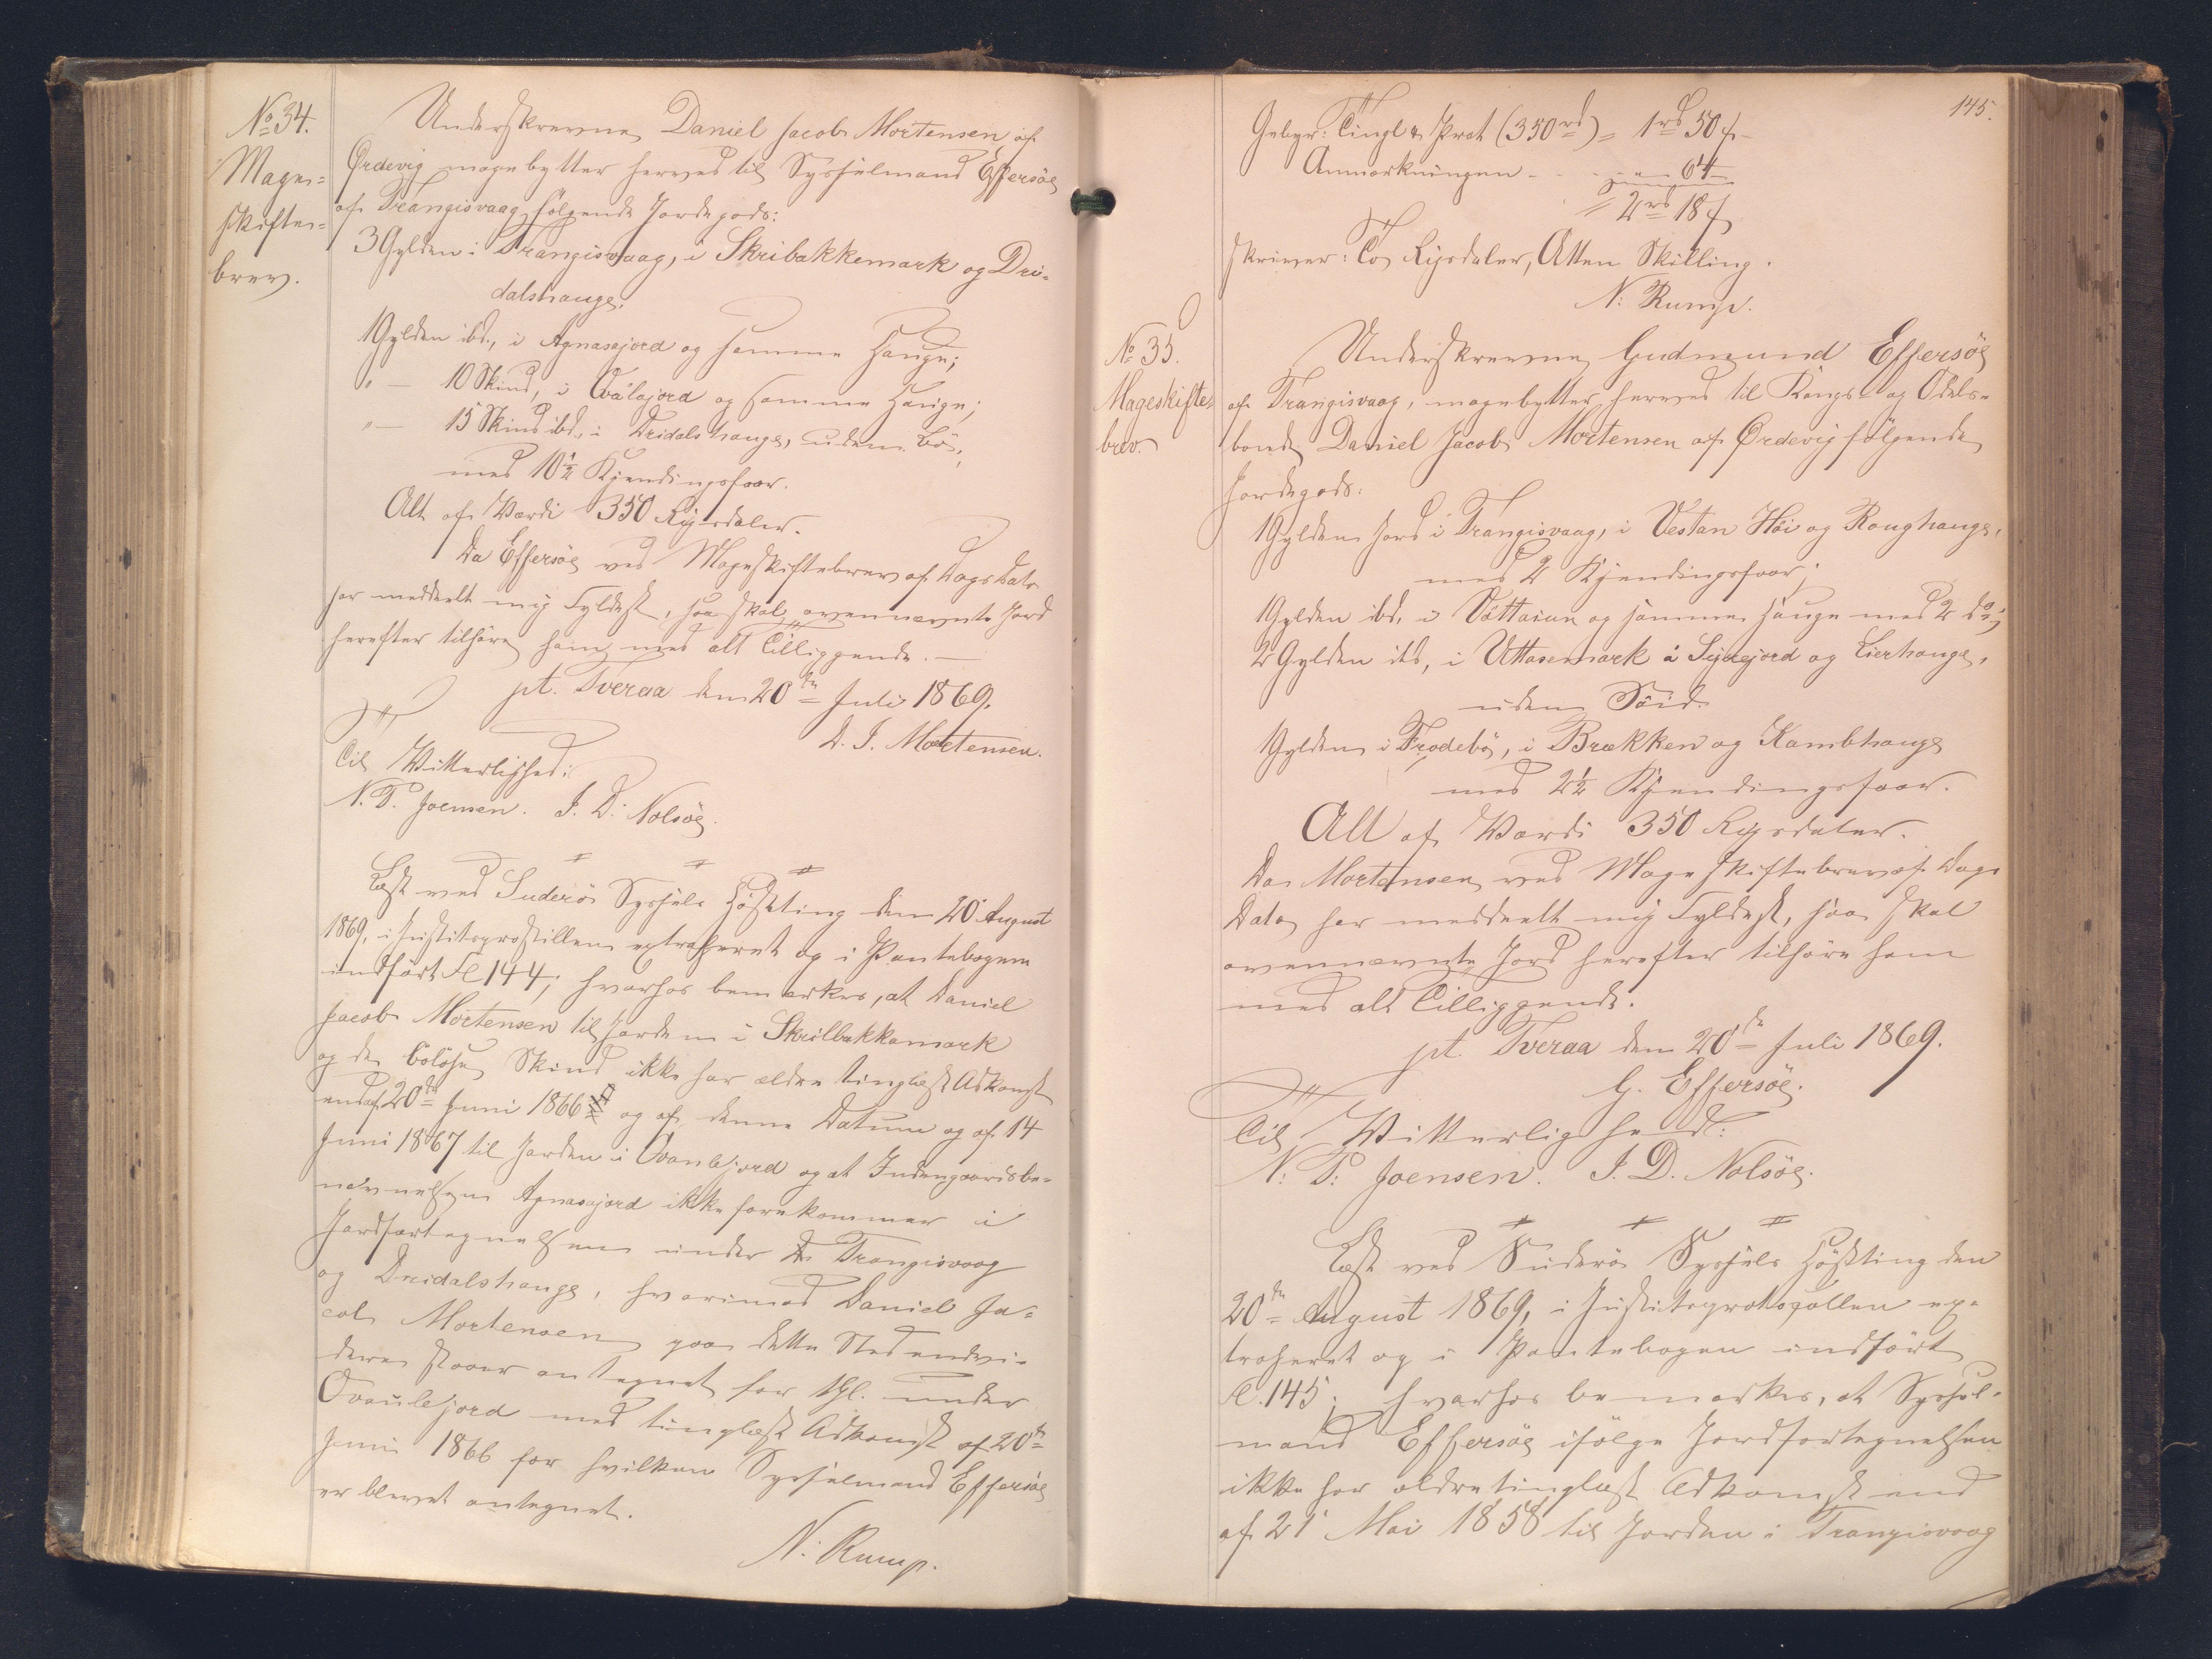 No 34.
Mage=
skifte=
brev.
Underskrevne Daniel Jacob Mortensen af
Ørdevig magebytter herved til Sysselmand Effersöe
af Trangisvaag følgende Jordegods:
3 Gylden i Trangisvaag, i Skribakkemark og Dri-
dalshauge;
1 Gylden ibd., i Agnasajord og samme Hauge;
" — 10 Skind, i Ovalajord og samme Hauge;
" — 15 Skind ibd., i Dridalshauge, uden Bö,
med 10½ Kjendingsfaar.
Alt af Værdi 350 Rigsdaler.
Da Effersöe ved Mageskiftebrev af Dags Dato
har meddeelt mig Fyldest, saa skal ovennævnte Jord
herefter tilhöre ham med alt Tilliggende. —
pt. Tveraa den 20de Juli 1869.
D. J. Mortensen.
Til Vitterlighed:
N. P. Joensen. J. D. Nolsöe.
Læst ved Suderö Syssels Höstting den 20 August
1869, i Justitsprotokollen extraheret og i Pantebogen
indfört Fol 144; hvorhos bemærkes, at Daniel
Jacob Mortensen til Jorden i Skrilbakkamark
og de bölöse Skind ikke har ældre tinglæst Adkomst
end af 20de Juni 1866 og af denne Datum og af 14
Juni 1867 til Jorden i Ovanlejord og at Indengaardsbe-
nævnelsen Agnasajord ikke forekommer i
Jordfortegnelsen under Trangisvaag
og Dridalshauge, hvorimod Daniel Ja-
cob Mortensen paa dette Sted endvi-
dere staaer antegnet for 1 Gl. under
Ovanlejord med tinglæst Adkomst af 20de
Juni 1866 for hvilken Sysselmand Effersöe
er blevet antegnet.
N. Rump.
145.
Gebyr: Tingl & Prot (350 rd) = 1 rd 50 s
Anmærkningen - - - " 64
= 2 rd 18 s
skriver: To Rigsdaler, Atten Skilling.
N. Rump.
No 35.
Mageskifte-
brev.
Underskrevne Gudmund Effersöe
af Trangisvaag, magebytter herved til Kongs- og Odels-
bonde Daniel Jacob Mortensen af Ørdevig fölgende
Jordegods:
1 Gylden Jord i Trangisvaag, i Vestan Höi og Roughauge,
med 2 Kjendingsfaar;
1 Gylden ibd. i Vottatun og samme Hauge med 2 do;
2 Gylden ibd, i Uttasemark i Syirejord og Lierhauge,
uden Söid.
1 Gylden i Frodebö, i Brækken og Kambhauge
med 2½ Kjendingsfaar.
Alt af Værdi 350 Rigsdaler.
Da Mortensen ved Mageskiftebrev af Dags
Dato har meddeelt mig Fyldest, saa skal
ovennævnte Jord herefter tilhöre ham
med alt Tilliggende.
pt. Tveraa den 20de Juli 1869.
G. Effersöe.
Til Vitterlighed:
N. P. Joensen. J. D. Nolsöe.
Læst ved Suderö Syssels Höstting den
20de August 1869, i Justitsprotokollen ex-
traheret og i Pantebogen indfört
Fol. 145; hvorhos bemærkes, at Syssel-
mand Effersöe ifölge Jordfortegnelsen
ikke har ældre tinglæst Adkomst end
af 21 Mai 1858 til Jorden i Trangisvaag